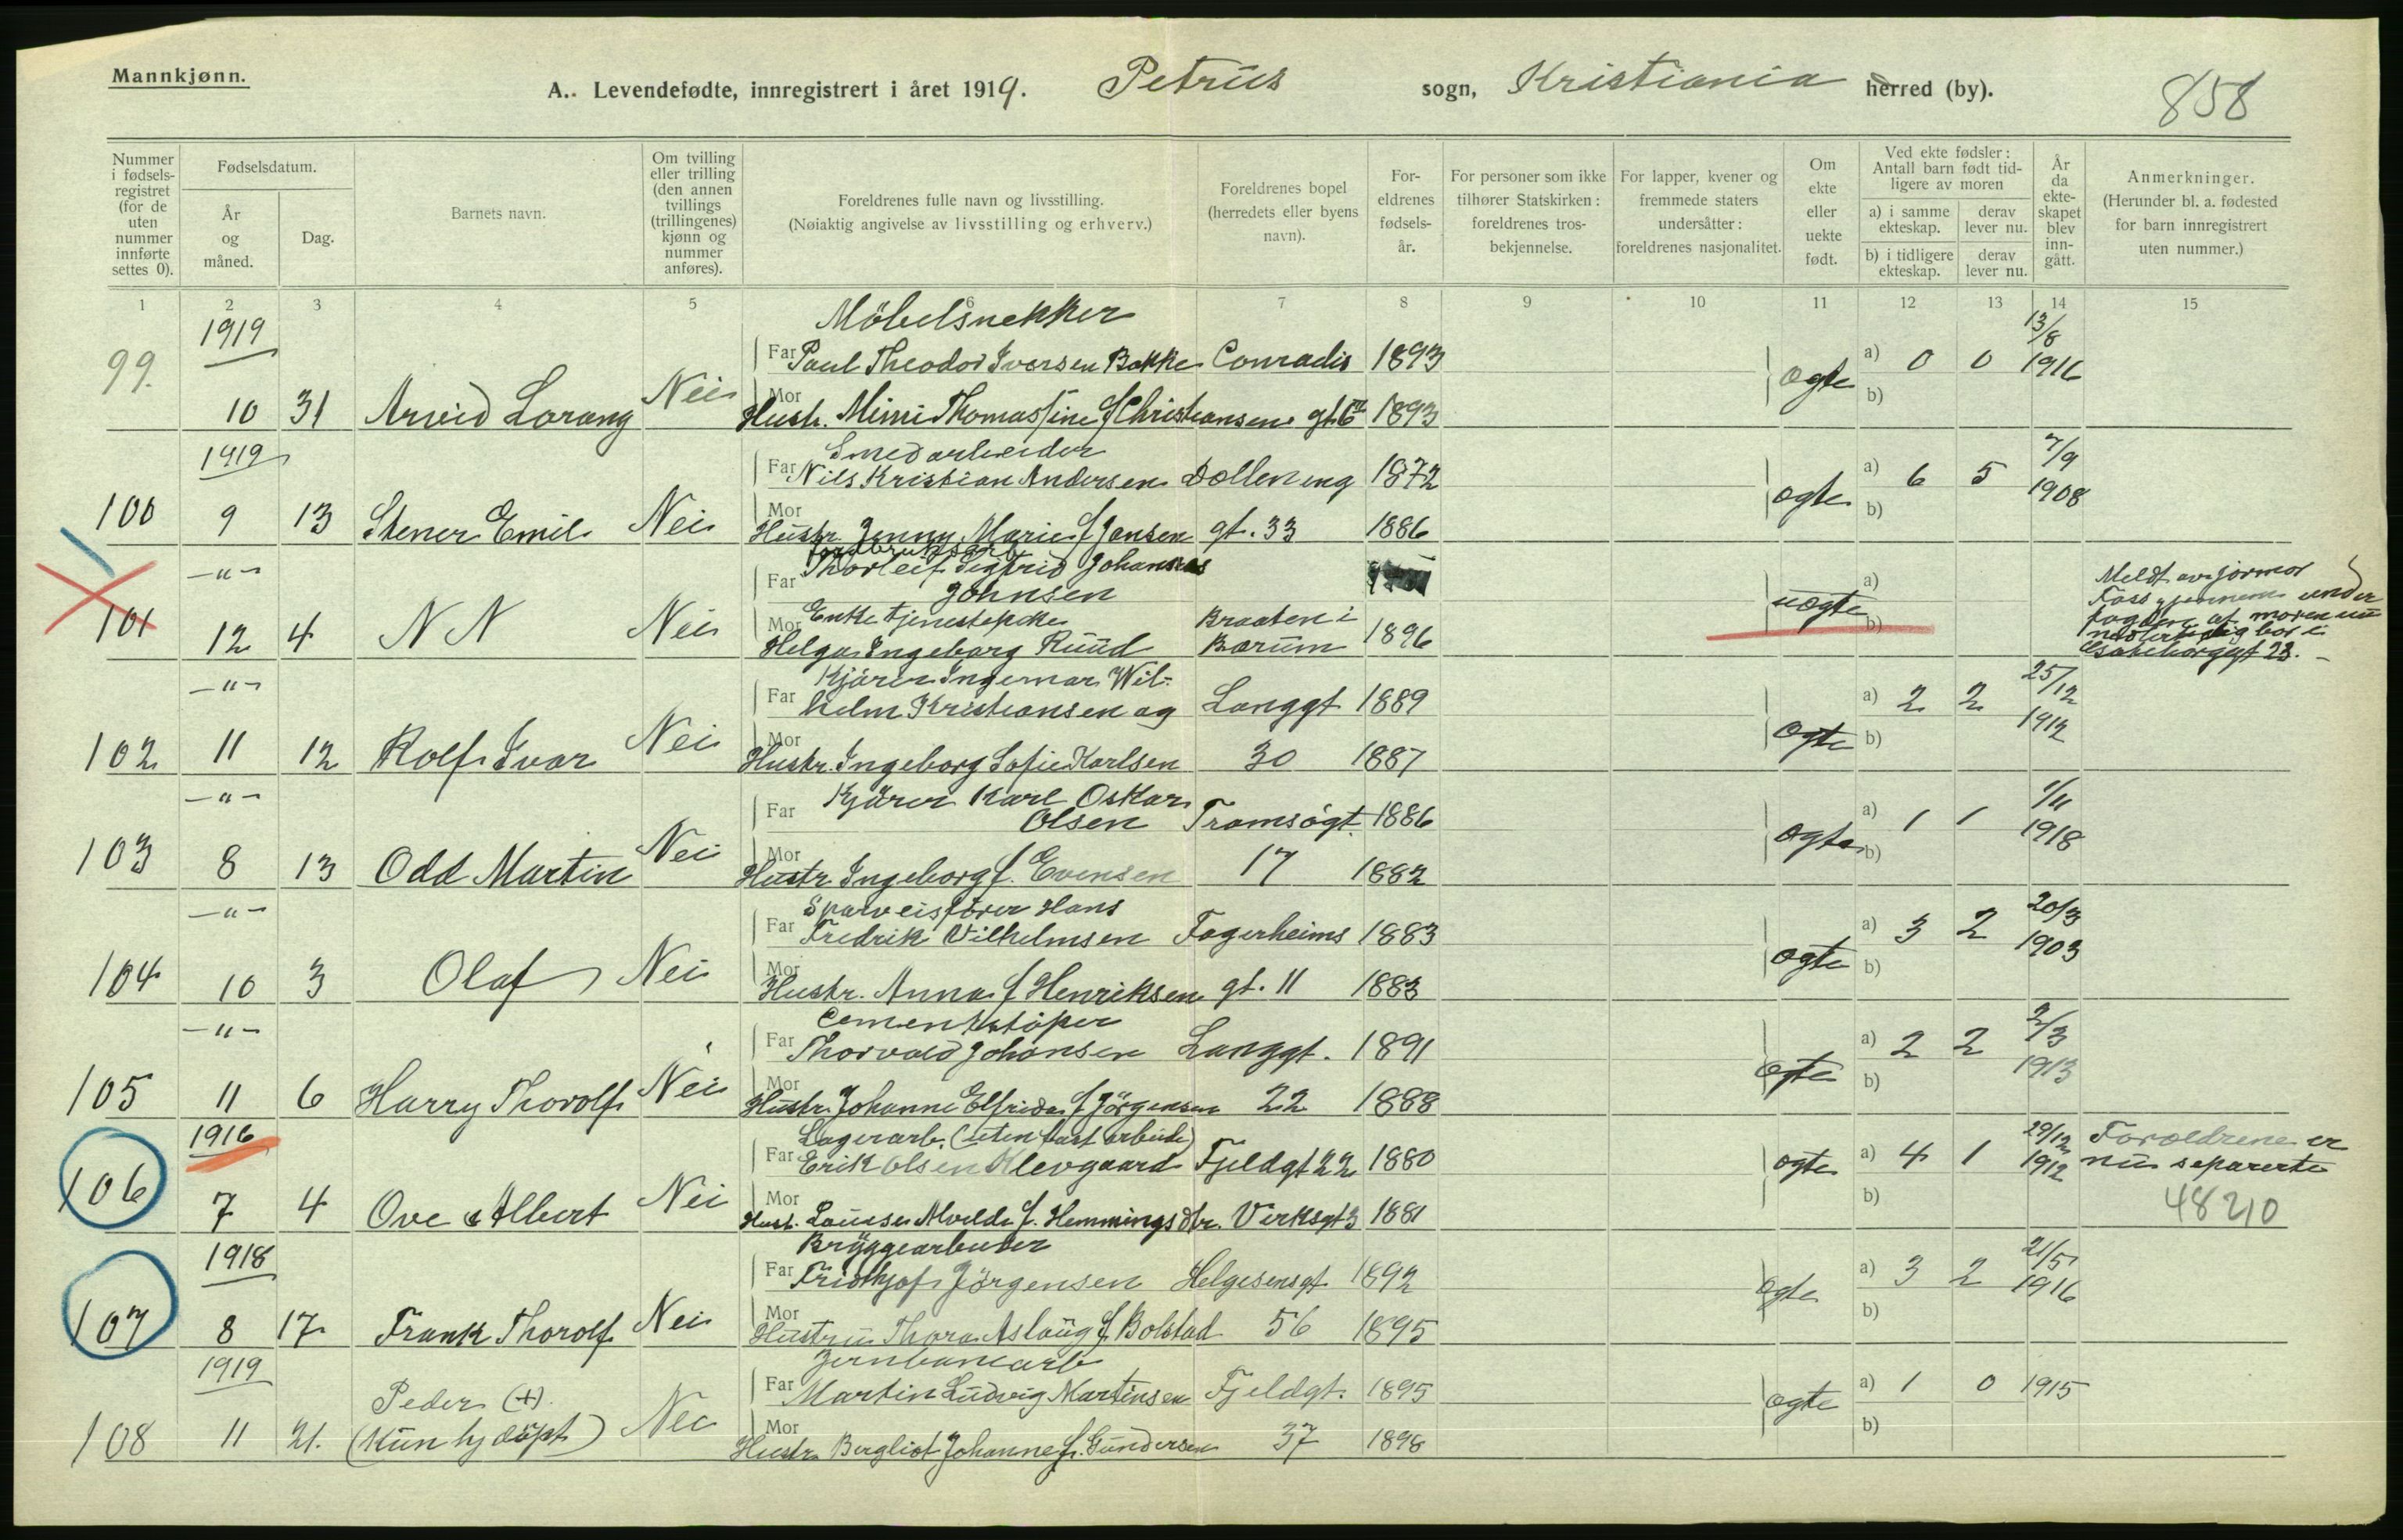 Mannkjønn.
A. Levendefødte, innregistrert i året 1919. Petrus sogn, Kristiania herred (by). 858
Nummer i fødselsregistret (for de uten nummer innførte settes 0).
Fødselsdatum.
År og måned.
Dag.
Barnets navn.
Om tvilling eller trilling (den annen tvillings (trillingenes) kjønn og nummer anføres).
Foreldrenes fulle navn og livsstilling.
(Nøiaktig angivelse av livsstilling og erhverv.)
Foreldrenes bopel (herredets eller byens navn).
Foreldrenes fødselsår.
For personer som ikke tilhører Statskirken: foreldrenes trosbekjennelse.
For lapper, kvener og fremmede staters undersåtter: foreldrenes nasjonalitet.
Om ekte eller uekte født.
Ved ekte fødsler: Antall barn født tidligere av moren
a) i samme ekteskap. derav lever nu.
b) i tidligere ekteskap. derav lever nu.
År da ekteskapet blev inngått.
Anmerkninger.
(Herunder bl. a. fødested for barn innregistrert uten nummer.)
1 2 3 4 5 6 7 8 9 10 11 12 13 14 15
1919 Möbelsnekker 13/8
99. Far Paul Theodor Iversen Bakke Conradis 1893 a) 0 0 1916
10 31 Arvid Lorang Nei Mor Hustr. Mimi Thomassine f Christiansen gt 6 1893 ogte b)
1919 Smedarbeider 7/9
Far Nils Kristian Andersen Dælleneng 1872 a) 6 5 1908
100 9 13 Stener Emil Nei Mor Hustr Jenny Marie f Jansen gt. 33 1886 ogte b)
-"- Jordbruksarb
Far Thorleif Sigfrid Johannes Johnsen a) Meldt av jormor
101 12 4 N N Nei Mor Enke tjenestepike Helga Ingeborg Ruud Braaten i Bærum 1896 uogte b)
-"- Kjörer Ingemar Wil- 25/12
Far helm Kristiansen og Langgt 1889 a) 2 2 1912
102 11 12 Rolf Ivar Nei Mor Hustr. Ingeborg Sofie Karlsen 30 1887 ogte b)
-"- Kjörer Karl Oskar 1/11
Far Olsen Tromsögt. 1886 a) 1 1 1918
103 8 13 Odd Martin Nei Mor Hustr Ingeborg f. Evensen 17 1882 ogte b)
-"- Sporveisfører Hans 20/3
Far Fredrik Vilhelmsen Fagerheims 1883 a) 3 2 1903
104 10 3 Olaf Nei Mor Hustr. Anna f Henriksen gt. 11 1883 ogte b)
-"- Cementstöper 2/3
Far Thorvald Johansen Langgt. 1891 a) 2 2 1913
105 11 6 Harry Thorolf Nei Mor Hustr Johanne Elfrida f Jörgensen 22 1888 ogte b)
1916 Lagerarb. (uten fast arbeide) 29/12 Foreldrene er
Far Erik Olsen Klevgaard Fjeldgt 22 1880 a) 4 1 1912 nu separerte
106 7 4 Ove Albert Nei Mor Hust. Louise Alvilde f. Hemmingsdtr. Verksgt 3 1881 ogte b) 48210
1918 Bryggearbeider 21/5
Far Fridthjof Jörgensen Helgesensgt 1892 a) 3 2 1916
107 8 17 Frank Thorolf Nei Mor Hustru Thora Aslaug f. Bolstad 56 1895 ogte b)
1919 Jernbanearb
Peder (+). Far Martin Ludvig Martinsen Fjeldgt. 1895 a) 1 0 1915
108 11 21. (Kun hj døpt) Nei Mor Hustr. Bergliot Johanne f. Gundersen 37 1898 ogte b)